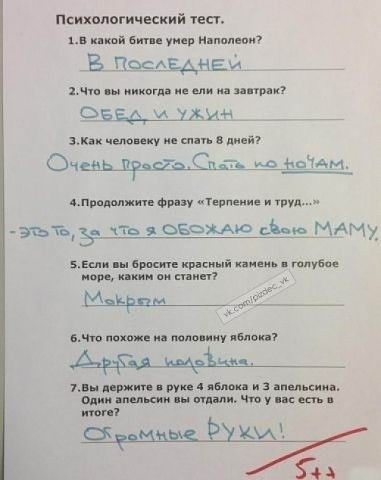 Психологический тест.
1.В какой битве умер Наполеон?
В ПОСЛЕДНЕЙ
2.Что вы никогда не ели на завтрак?
ОБЕД И УЖИН
3.Как человеку не спать 8 дней?
Очень просто. Спать по НОЧАМ.
4.Продолжите фразу «Терпение и труд...»
-ЭТО ТО, за что я ОБОЖАЮ свою МАМУ.
5.Если вы бросите красный камень в голубое
море, каким он станет?
Мокрым
vk.com/pizdec_vk
6.Что похоже на половину яблока?
Другая половина.
7.Вы держите в руке 4 яблока и 3 апельсина.
Один апельсин вы отдали. Что у вас есть в
итоге?
Огромные РУКИ!
5++